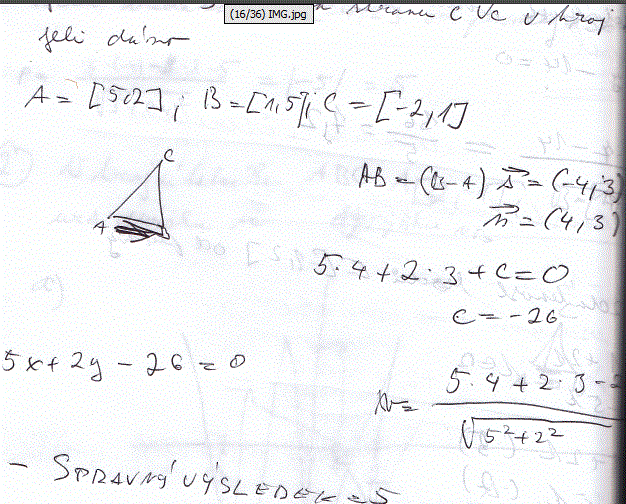 (16/36) IMG.jpg
stranu c vc v troj
jeli dáno
A = [5;2] ; B = [1,5] ; C = [-2,1]
C
A
AB = (B-A) s = (-4;3)
n = (4,3)
5·4+2·3+c=0
c=-26
5x+2y-26=0
5·4+2·3-2
N=
√5²+2²
- SPRAVNÝ VÝSLEDEK=5